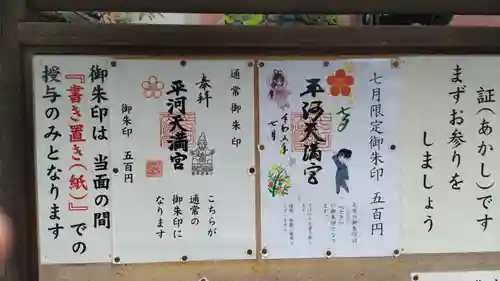 証(あかし)です
まずお参りを
しましょう
七月限定御朱印 五百円
平河天満宮
令和三年
七月
通常御朱印
奉拝
平河天満宮
御朱印 五百円
こちらが
通常の
御朱印に
なります
御朱印は 当面の間
『書き置き(紙)』での
授与のみとなります